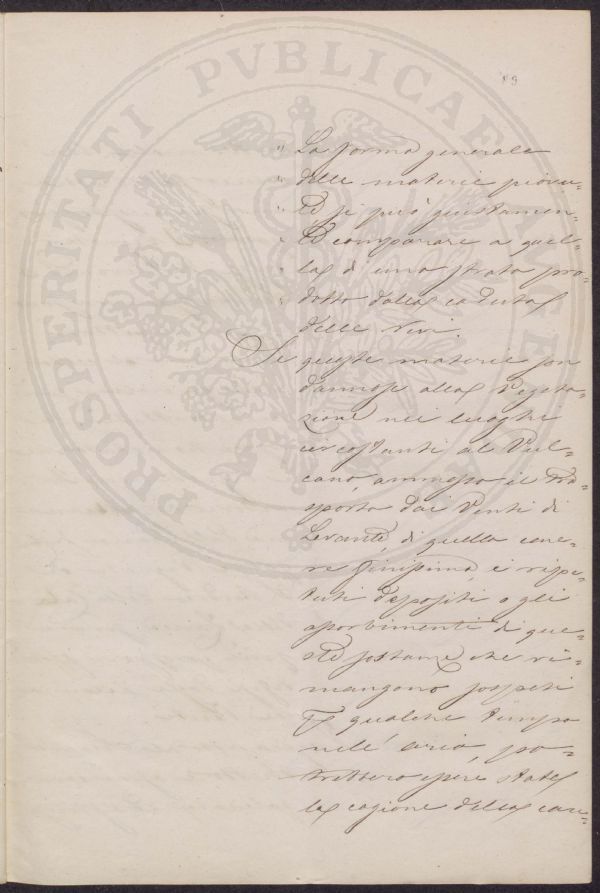 89
" La forma generale
" delle materie piovu=
" te si può giustamen=
" te comparare a quel=
" la d'uno strato pro=
" dotto dalla caduta
delle Nevi.
Se queste materie son
dannose alla Vegeta=
zione nei luoghi
circostanti al Vul=
cano, ammesso il tra=
sporto dai Venti di
Levante, di quella cene=
re finissima, i ripe=
tuti depositi o gli
assorbimenti di que=
ste sostanze che ri=
mangono sospesi
qualche tempo
nell' aria, po=
trebbero essere state
la cagione della care=
PROSPERITATI PVBLICAE AVGE